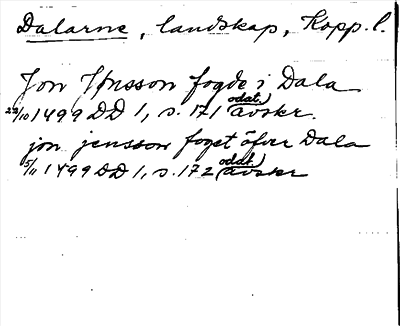 Dalarne, landskap, Kopp. l.
Jon Jönsson fogde i Dala
22/10 1499 DD 1, s. 171 (odat.) avskr.
jon jensson foget öfver Dala
5/11 1499 DD 1, s. 172 (odat.) avskr